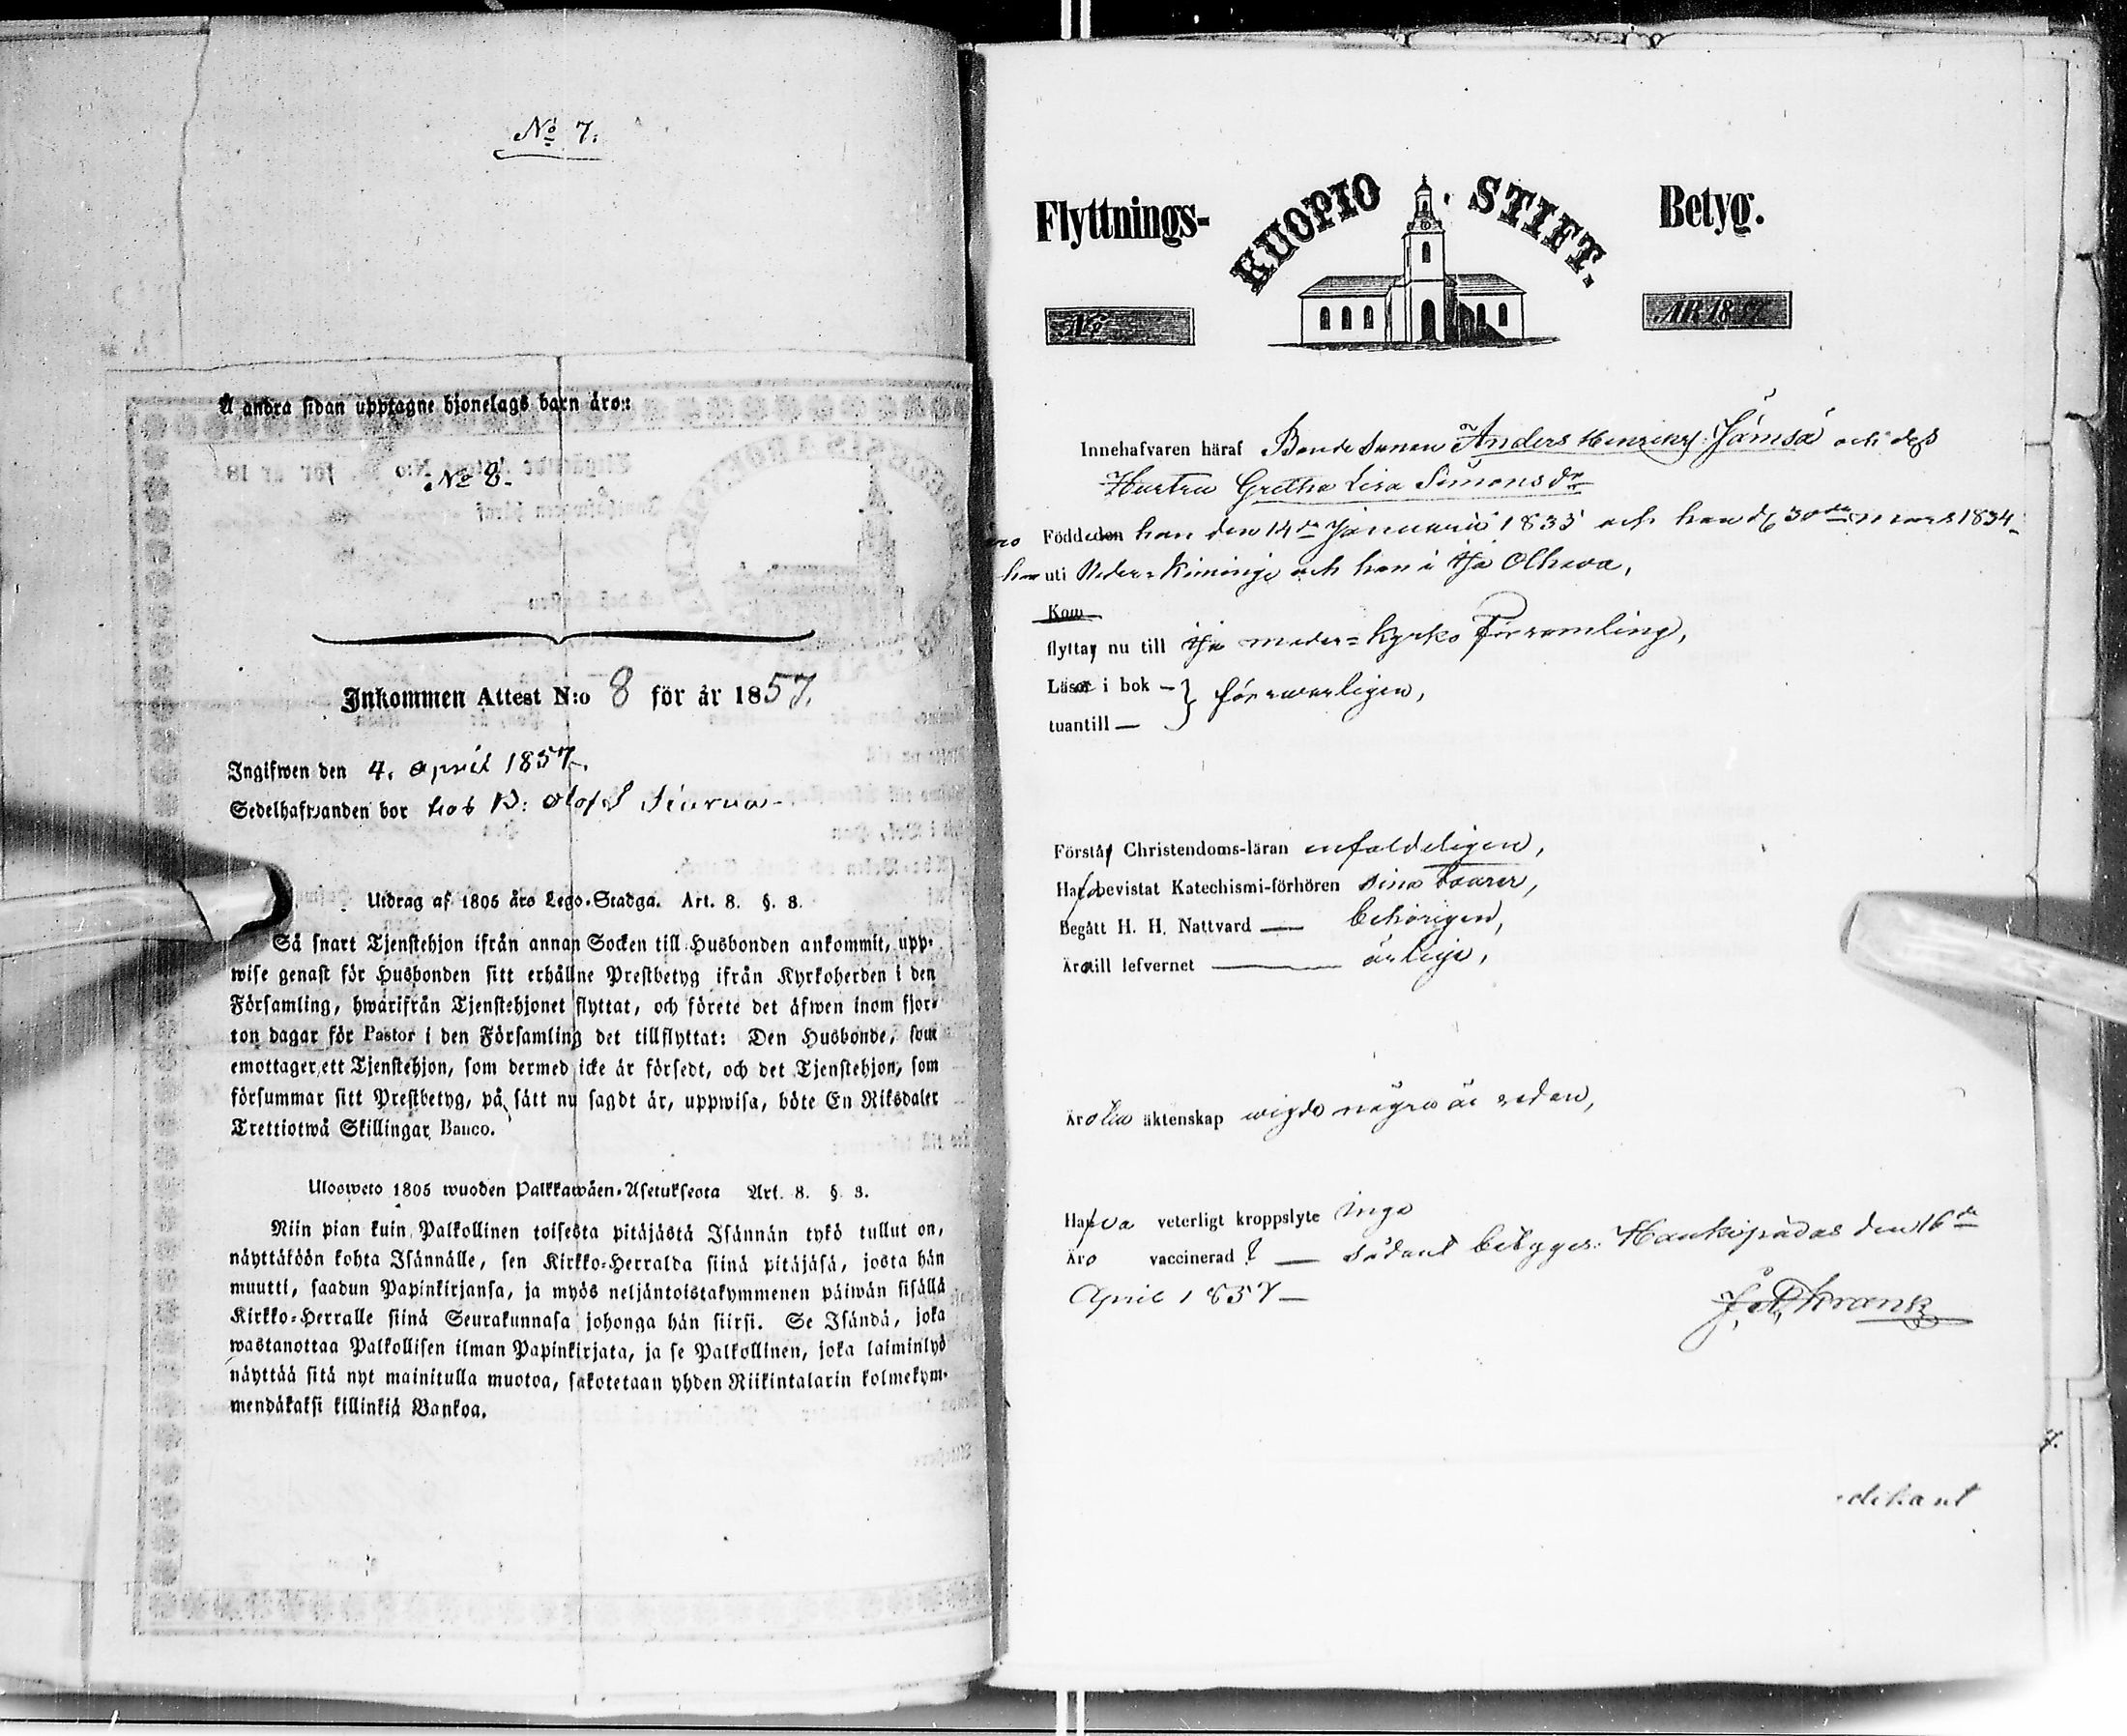 No 7.
Å andra sidan upptagne hjonelags barn äro:
No 8.
Inkommen Attest N:o 8 för år 1857.
Ingifwen den 4. April 1857.
Sedelhafwanden bor hos B: Olof
Utdrag af 1805 års Lego-Stadga. Art. 8. §. 8.
Så snart Tjenstehjon ifrån annan Socken till Husbonden ankommit, upp-
wise genast för Husbonden sitt erhållne Prestbetyg ifrån Kyrkoherden i den
Församling, hwarifrån Tjenstehjonet flyttat, och förete det äfwen inom fjor-
ton dagar för Pastor i den Församling det tillflyttat: Den Husbonde, som
emottager ett Tjenstehjon, som dermed icke är försedt, och det Tjenstehjon, som
försummar sitt Prestbetyg, på sätt nu sagdt är, uppwisa, böte En Riksdaler
Trettiotwå Skillingar Banco.
Ulosweto 1805 wuoden Palkkawäen-Asetuksesta Art. 8. § 8.
Niin pian kuin Palkollinen toisesta pitäjästä Isännän tykö tullut on,
näyttäköön kohta Isännälle, sen Kirkko-Herralda siinä pitäjäsä, josta hän
muutti, saadun Papinkirjansa, ja myös neljäntoistakymmenen päiwän sisällä
Kirkko-Herralle siinä Seurakunnasa johonga hän siirsi. Se Isändä, joka
wastanottaa Palkollisen ilman Papinkirjata, ja se Palkollinen, joka laiminlyö
näyttää sitä nyt mainitulla muotoa, sakotetaan yhden Riikintalarin kolmekym-
mendäkaksi killinkiä Bankoa.
Flyttnings- KUOPIO STIFT. Betyg.
No ÅR 1857
Innehafvaren häraf Bondesonen Anders Henriks: Jämsä och dess
Hustru Gretha Lisa Simonsdr
äro Födde den han den 14de Januarii 1835 och hon d. 30de mars 1834
han uti Neder-Kiminge och hon i Ijo Olhava,
Kom
flytta nu till Ijo moder-kyrko Församling,
Läsa i bok — } försvarligen,
tuantill —
Förstå Christendoms-läran enfaldeligen,
Hafva bevistat Katechismi-förhören sina
Begått H. H. Nattvard — behörigen,
Äro till lefvernet — ärlige,
Äro till äktenskap wigde några år sedan,
Hafva veterligt kroppslyte inga
Äro vaccinerad — sådant betygges. Haukipudas den 16de
April 1857 —